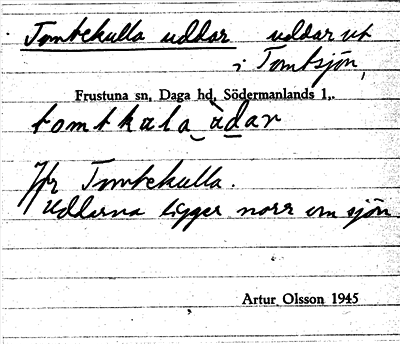 Tomtekulla uddar uddar ut
i Tomtsjön,
Frustuna sn, Daga hd, Södermanlands l,.
tomtkula ùdar
Jfr Tomtekulla.
Uddarna ligger norr om sjön
Artur Olsson 1945